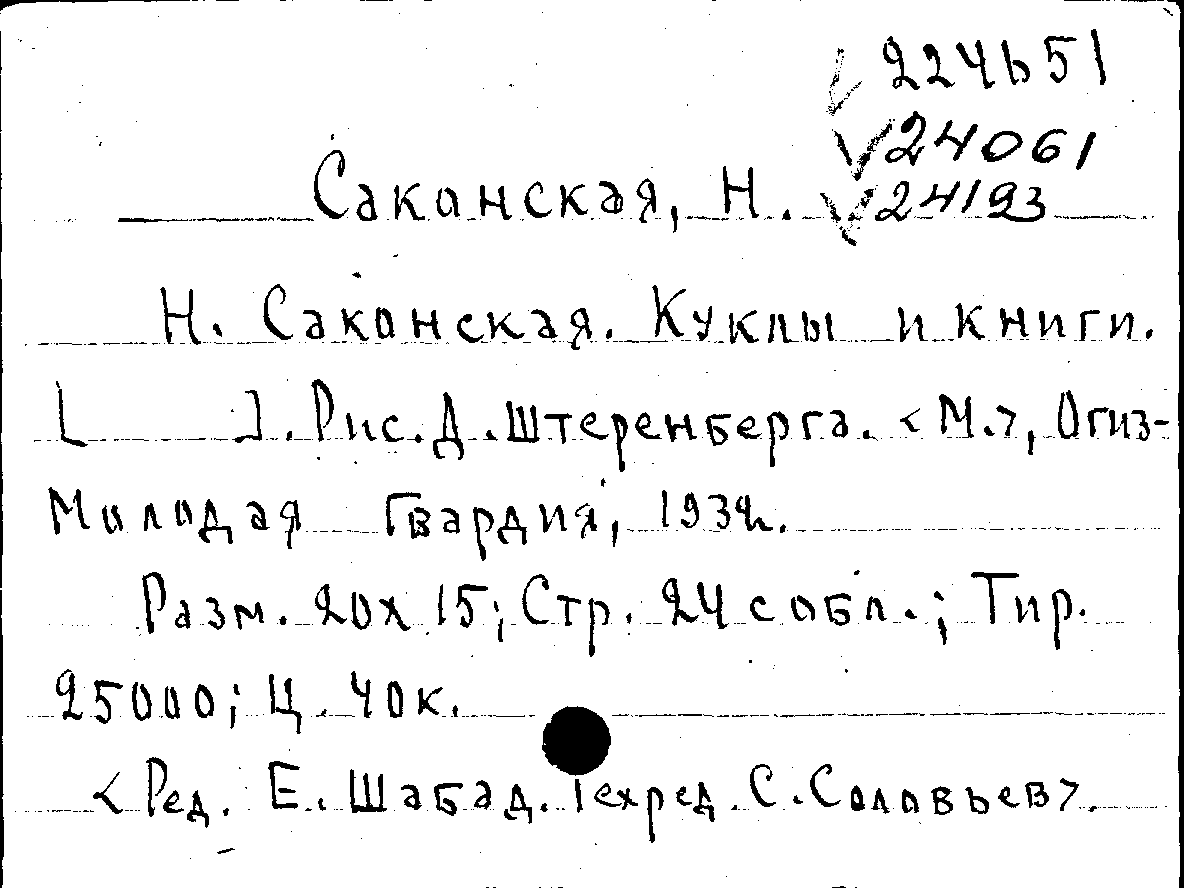 224651
24061
Саконская, Н.
24193
Н. Саконская. Куклы и книги.
[ ]. Рис. Д. Штеренберга. <М.>, Огиз-
Молодая Гвардия,
Разм. 20х15; Стр. 24 с обл.; Тир.
25000; Ц. 40к.
<Ред. Е. Шабад. Техред. С. Соловьев>.